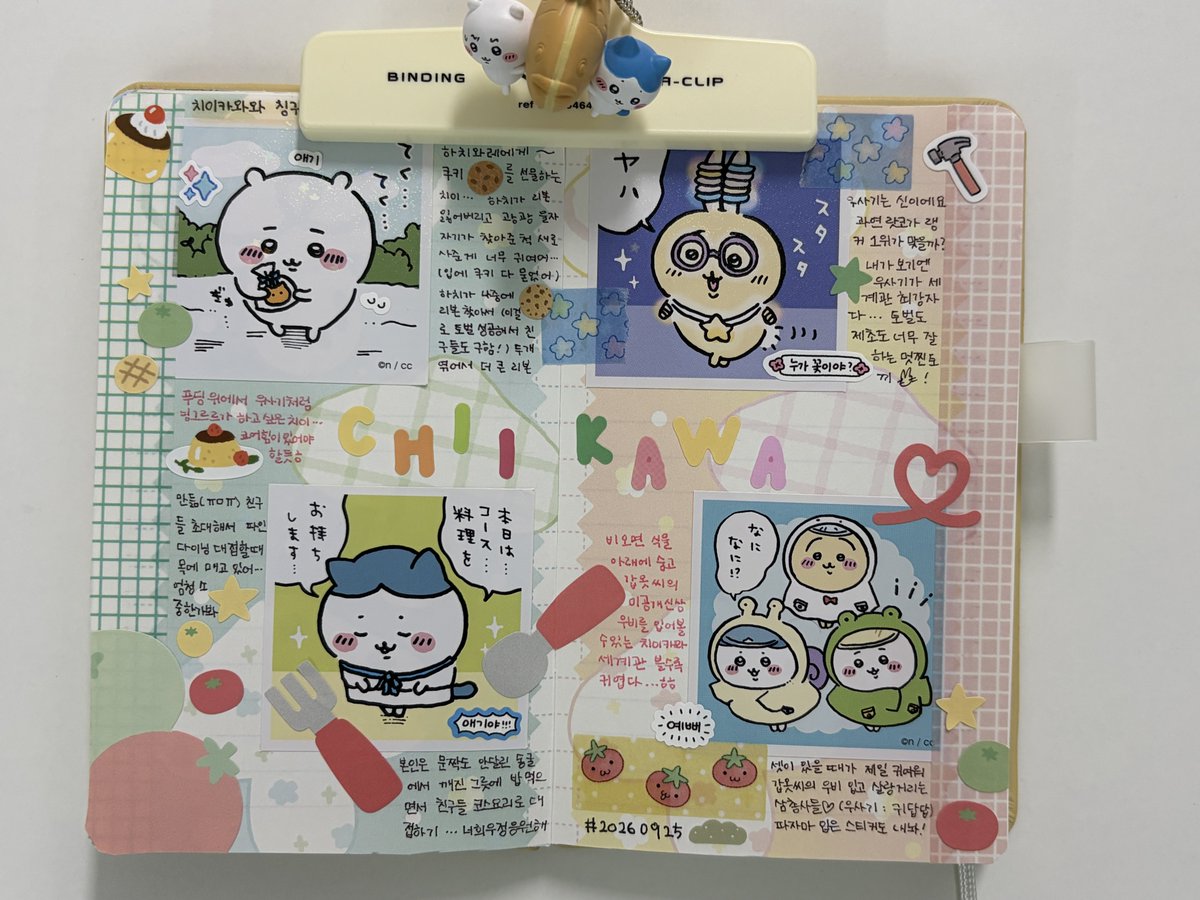 BINDING
A-CLIP
치이카와와 침구
てく…
てく…
얘기
ⓒn / cc
하치와레에게~
쿠키 를 선물하는
치이… 하치가 리본
잃어버리고 고장장 울자
자기가 찾아준 척 새로
사준게 너무 귀여어…
(입에 쿠키 다 묻었어)
하치가 나중에
리본 찾아서 (이걸
로 토벌 성공해서 친
구들도 구함!) 두개
엮어서 더 큰 리본
푸딩 위에서 우사기처럼
빙그르르가 하고 싶은 치이…
코어힘이 있어야
할듯ㅎ
만듦(ㅠㅁㅠ) 친구
들 초대해서 파인
다이닝 대접할때
목에 매고 있어…
엄청 소
중한가봐
本日は…
コース…
料理を
お持ち…
します…
얘기야!!!
본인은 문짝도 안달린 동굴
에서 깨진 그릇에 밥 먹으
면서 친구들 코스요리로 대
접하기 … 너희우정응원해
CHIIKAWA
ヤハ
スタ
スタ
누가 꽃이야?
우사기는 신이에요
과연 랏코가 랭
커 1위가 맞을까?
내가 보기엔
우사기가 세
계관 최강자
다… 토벌도
제초도 너무 잘
하는 멋찐도
비오면 식물
아래에 숨고
갑옷씨의
미공개신상
우비를 입어볼
수있는 치이카와
세계관 볼수록
귀엽다…ㅎㅎ
なに
なに!?
ⓒn / cc
예뻐
셋이 있을 때가 제일 귀여워
갑옷씨의 우비 입고 살랑거리는
삼총사들♡ (우사기 : 귀답답)
파자마 입은 스티커도 내놔!
#20260925